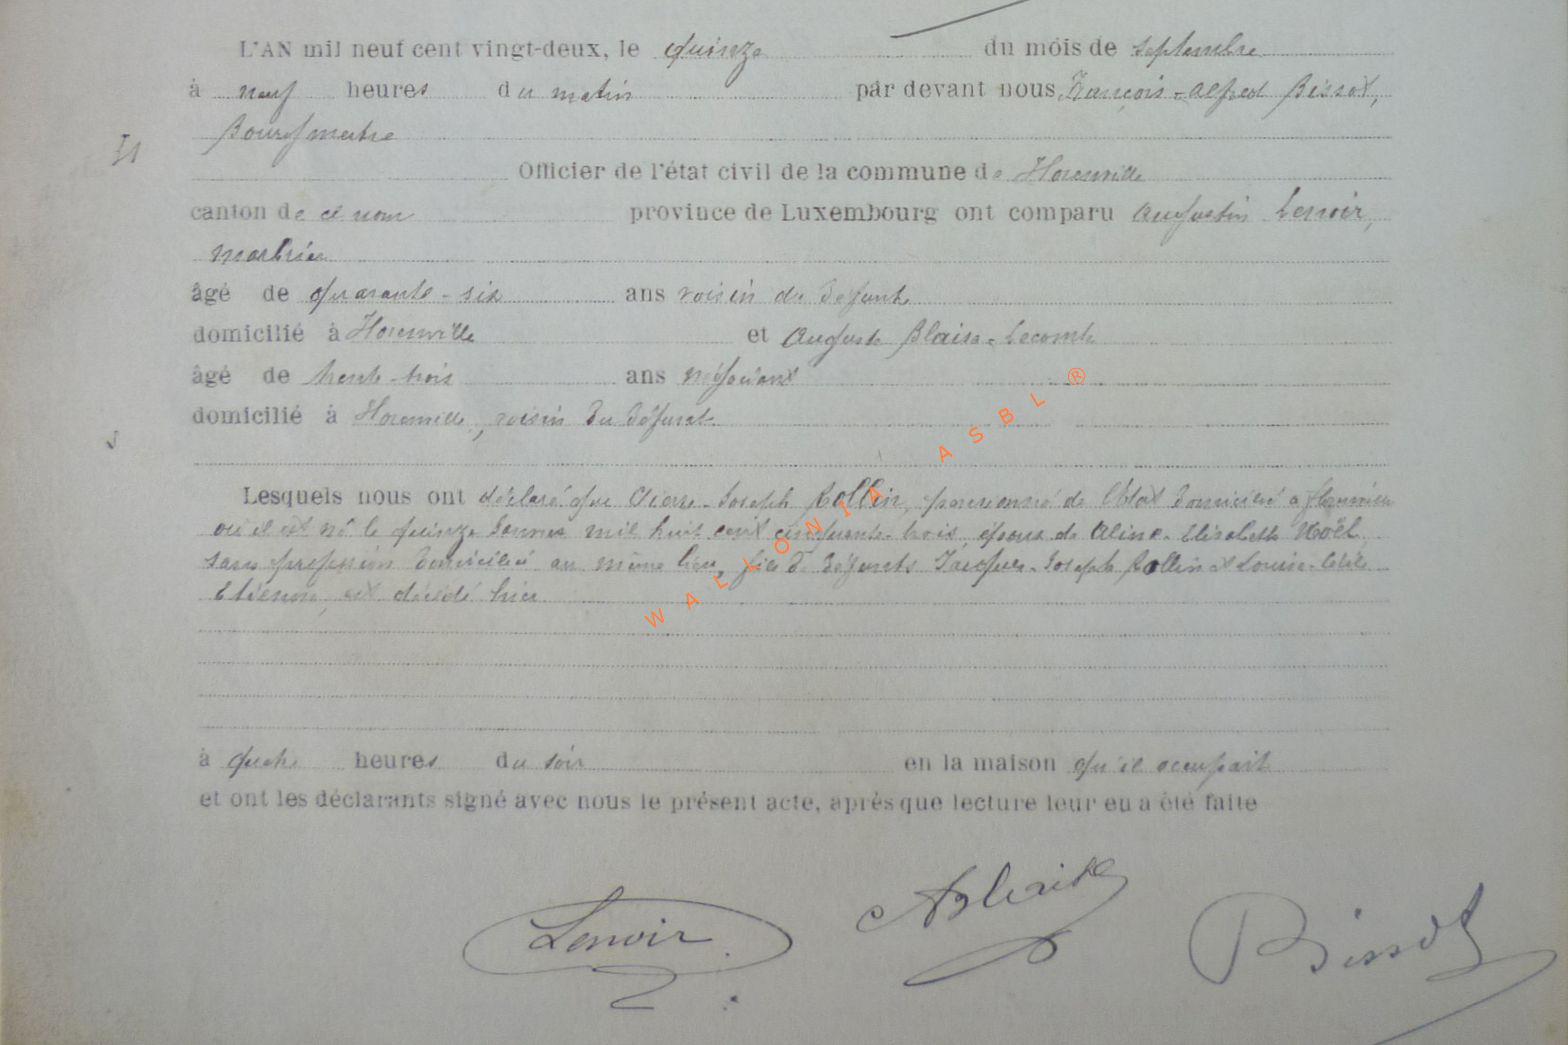 L'AN mil neuf cent vingt-deux, le quinze du mois de septembre
à neuf heures du matin par devant nous, François-Alfred Bissot,
Bourgmestre
Officier de l'état civil de la commune de
canton de ce nom province de Luxembourg ont comparu Augustin Lenoir,
marbrier
âgé de quarante-six ans voisin du défunt
domicilié à et Auguste Blaise-Lecomte
âgé de trente-trois ans négociant
domicilié à voisin du défunt
Lesquels nous ont déclaré que Pierre-Joseph Rollin, pensionné de l'état domicilié à
où il est né le quinze janvier mil huit cent cinquante-trois, époux de Aline-Elisabeth Noël
sans profession domiciliée au même lieu, fils de défunts Jacques-Joseph Rollin et Louise-Cécile
est décédé hier
à quatre heures du soir en la maison qu'il occupait
et ont les déclarants signé avec nous le présent acte, après que lecture leur eu a été faite
Lenoir ABlaise Bissot
WALLONIA ASBL ®